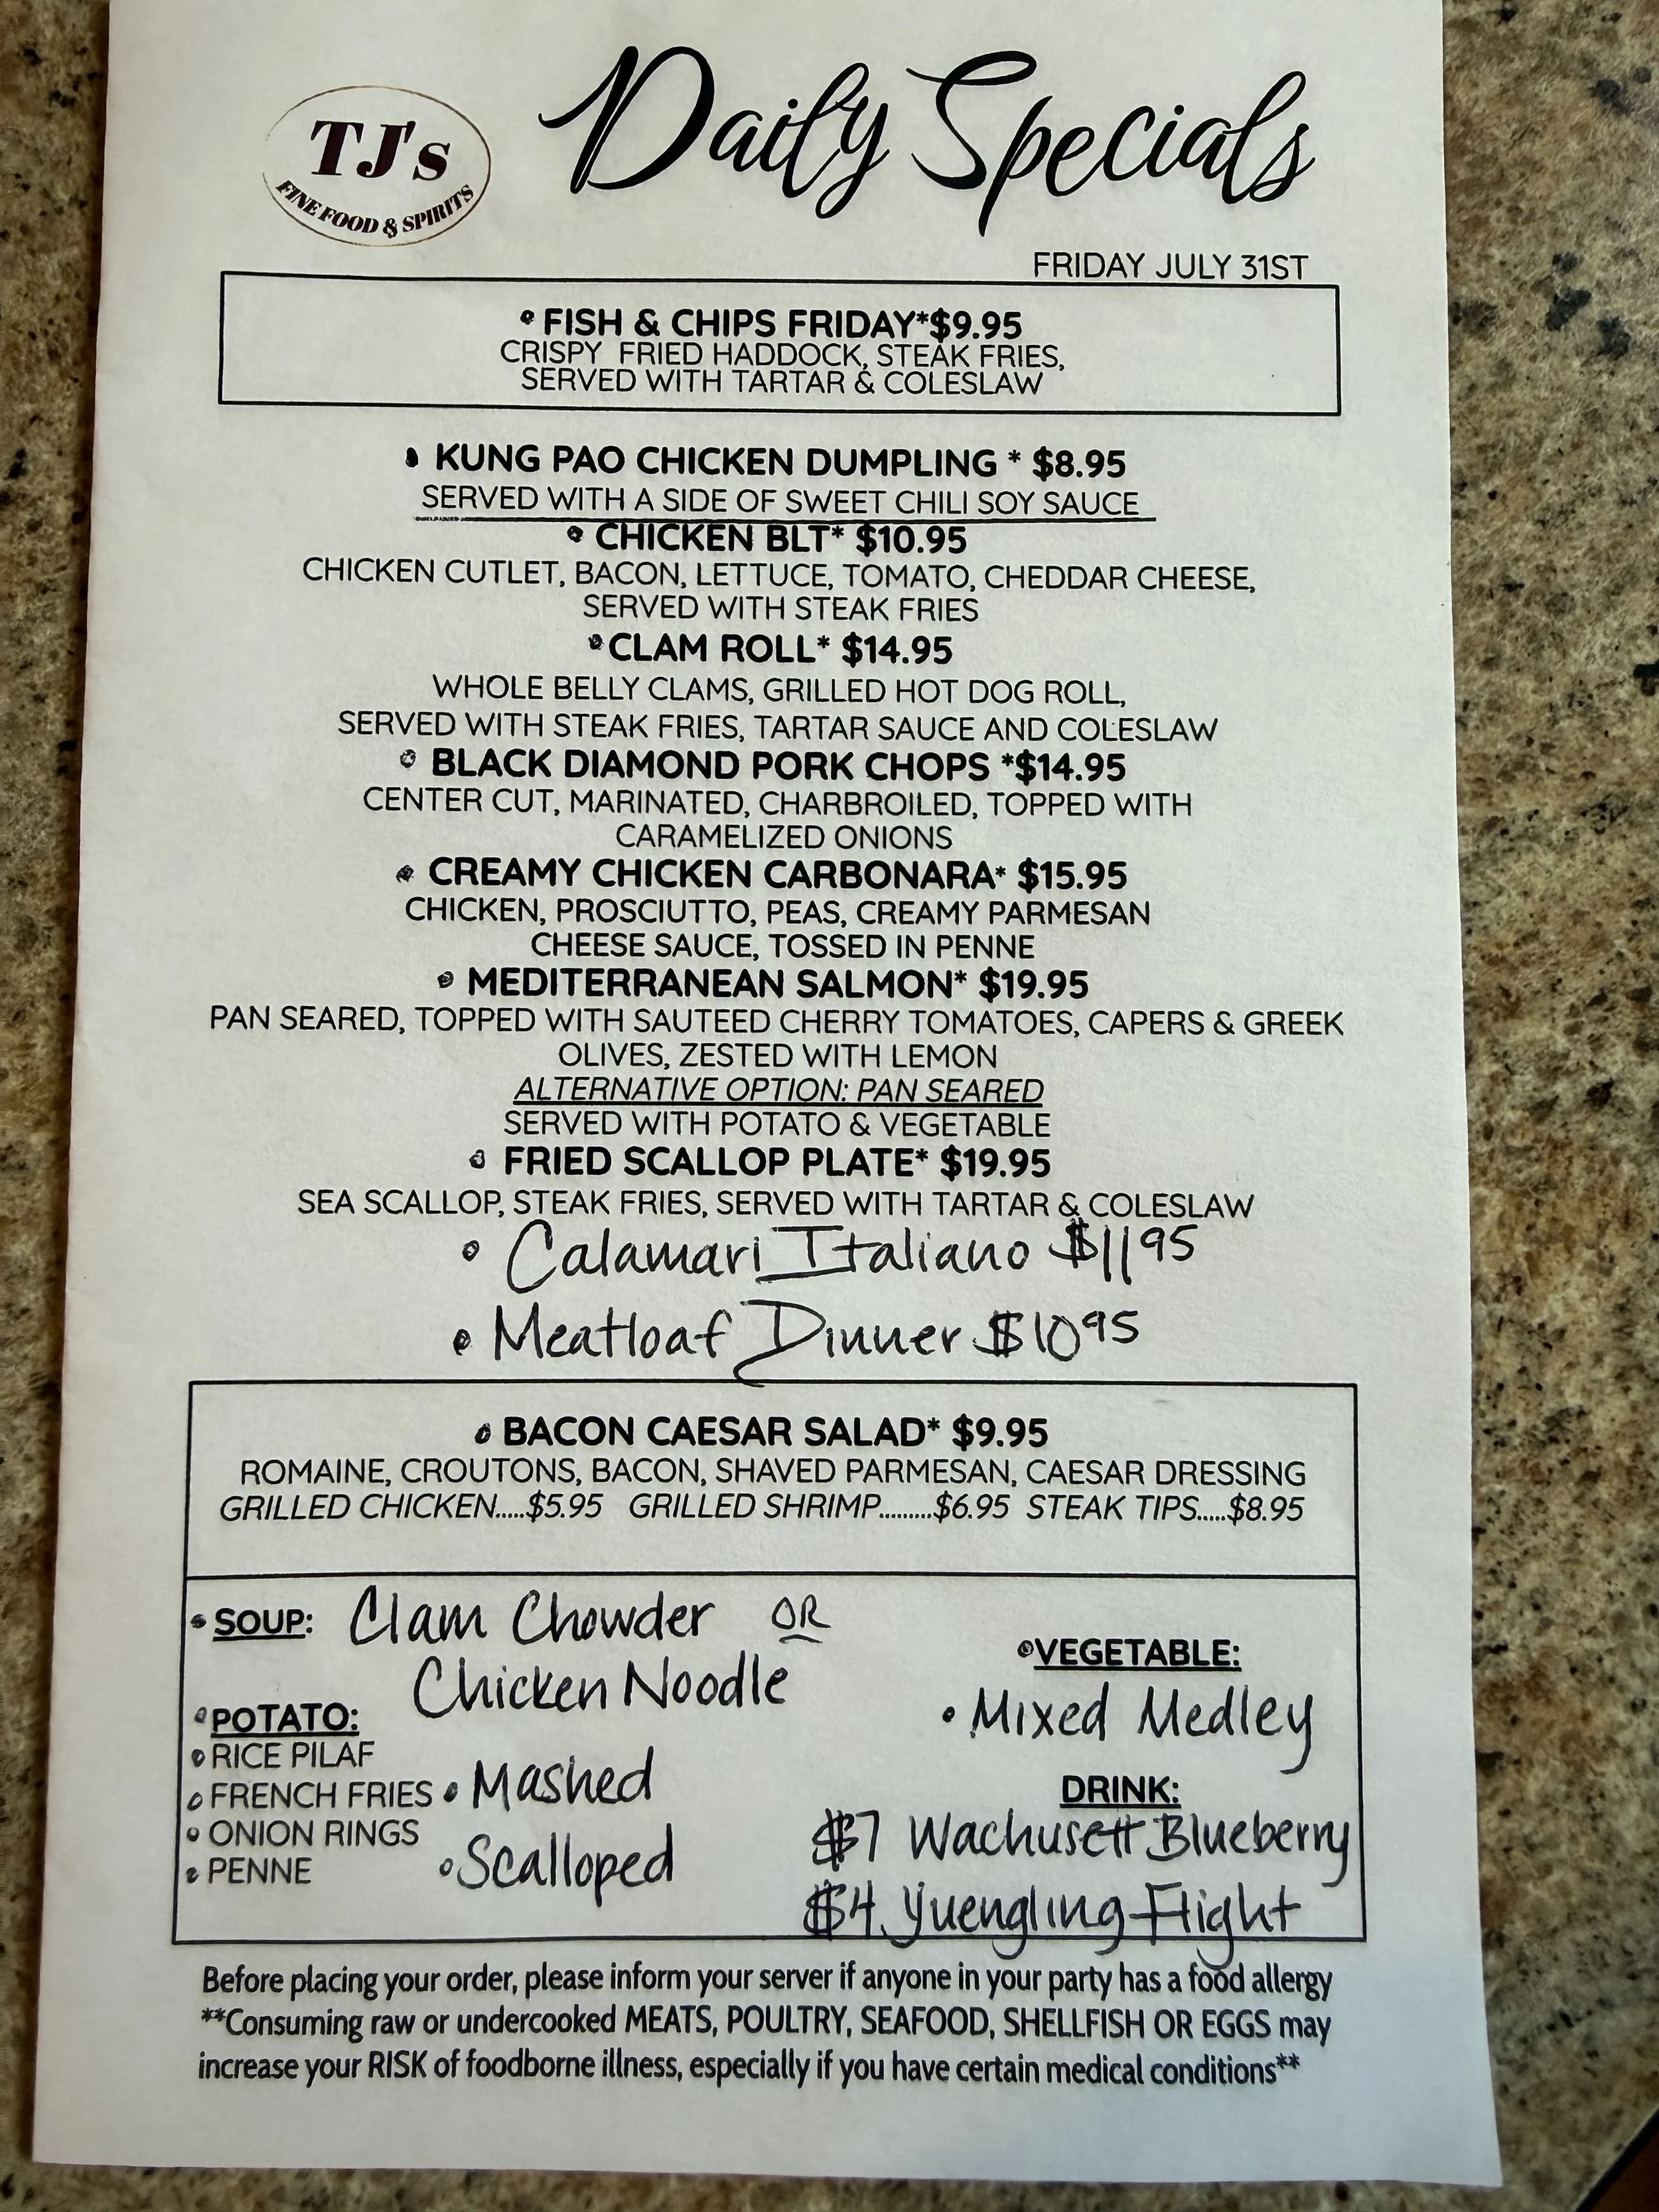 TJ's
FINE FOOD & SPIRITS
Daily Specials
FRIDAY JULY 31ST
• FISH & CHIPS FRIDAY*$9.95
CRISPY FRIED HADDOCK, STEAK FRIES,
SERVED WITH TARTAR & COLESLAW
• KUNG PAO CHICKEN DUMPLING * $8.95
SERVED WITH A SIDE OF SWEET CHILI SOY SAUCE
• CHICKEN BLT* $10.95
CHICKEN CUTLET, BACON, LETTUCE, TOMATO, CHEDDAR CHEESE,
SERVED WITH STEAK FRIES
• CLAM ROLL* $14.95
WHOLE BELLY CLAMS, GRILLED HOT DOG ROLL,
SERVED WITH STEAK FRIES, TARTAR SAUCE AND COLESLAW
• BLACK DIAMOND PORK CHOPS *$14.95
CENTER CUT, MARINATED, CHARBROILED, TOPPED WITH
CARAMELIZED ONIONS
• CREAMY CHICKEN CARBONARA* $15.95
CHICKEN, PROSCIUTTO, PEAS, CREAMY PARMESAN
CHEESE SAUCE, TOSSED IN PENNE
• MEDITERRANEAN SALMON* $19.95
PAN SEARED, TOPPED WITH SAUTEED CHERRY TOMATOES, CAPERS & GREEK
OLIVES, ZESTED WITH LEMON
ALTERNATIVE OPTION: PAN SEARED
SERVED WITH POTATO & VEGETABLE
• FRIED SCALLOP PLATE* $19.95
SEA SCALLOP, STEAK FRIES, SERVED WITH TARTAR & COLESLAW
• Calamari Italiano $11 95
• Meatloaf Dinner $10 95
• BACON CAESAR SALAD* $9.95
ROMAINE, CROUTONS, BACON, SHAVED PARMESAN, CAESAR DRESSING
GRILLED CHICKEN.....$5.95 GRILLED SHRIMP.........$6.95 STEAK TIPS.....$8.95
• SOUP: Clam Chowder OR
Chicken Noodle
• POTATO:
• RICE PILAF
• FRENCH FRIES
• ONION RINGS
• PENNE
• Mashed
• Scalloped
• VEGETABLE:
• Mixed Medley
DRINK:
$7 Wachusett Blueberry
$4 Yuengling Flight
Before placing your order, please inform your server if anyone in your party has a food allergy
**Consuming raw or undercooked MEATS, POULTRY, SEAFOOD, SHELLFISH OR EGGS may
increase your RISK of foodborne illness, especially if you have certain medical conditions**